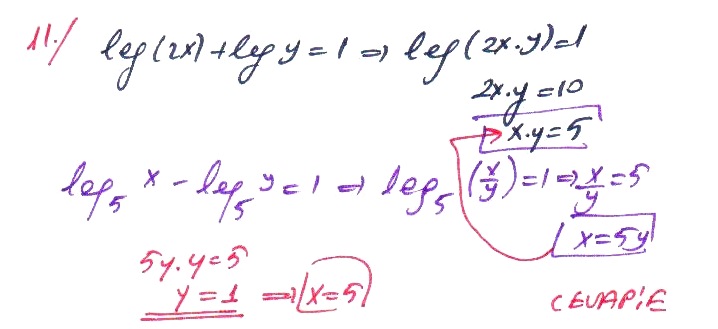 11./ log(2x)+log y=1 ⇒ log(2x.y)=1
2x.y=10
x.y=5
log₅ x - log₅ y=1 ⇒ log₅ (x/y)=1 ⇒ x/y=5
x=5y
5y.y=5
y=1 ⇒ x=5
CEVAP:E